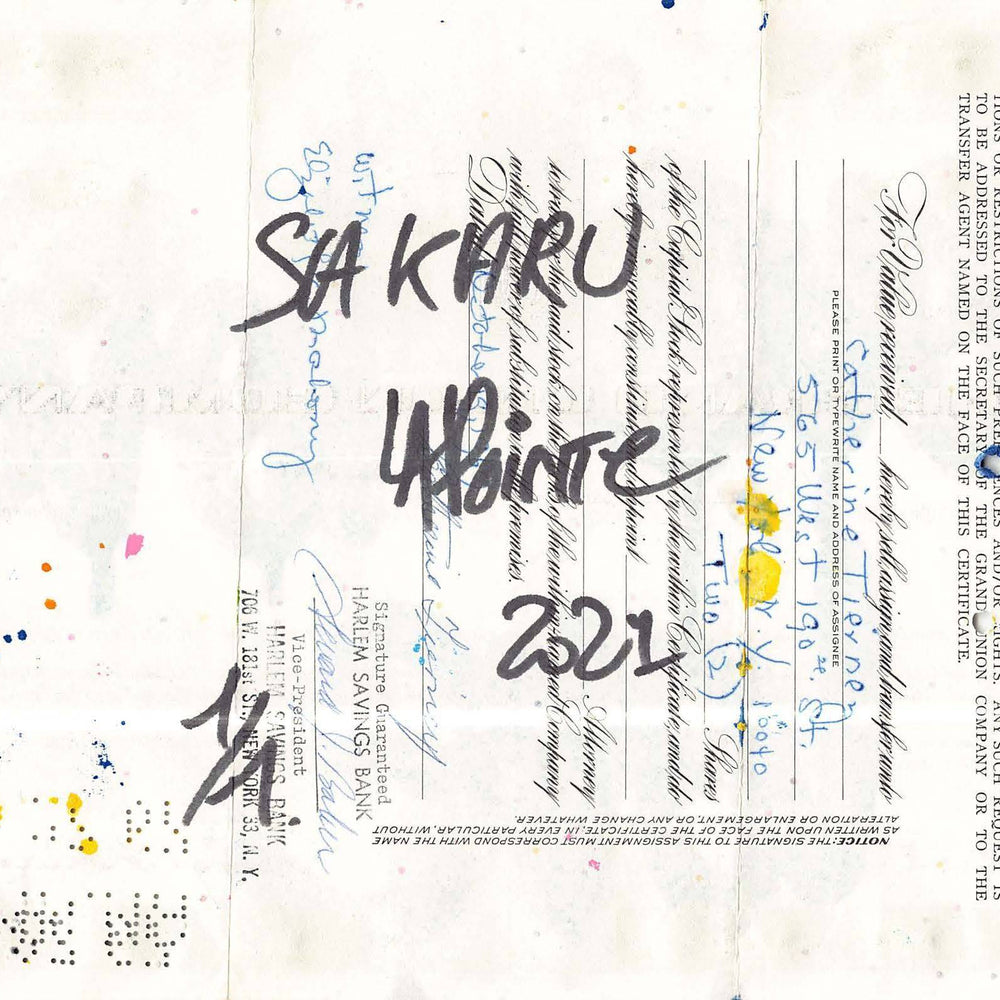 SAKARU
LAPOINTE
2021
1/1.
TO BE ADDRESSED TO THE SECRETARY OF THE GRAND UNION COMPANY OR TO THE
TRANSFER AGENT NAMED ON THE FACE OF THIS CERTIFICATE.
For Value received hereby sell, assign, and transfer unto
Catherine Tierney
PLEASE PRINT OR TYPEWRITE NAME AND ADDRESS OF ASSIGNEE
565 West 190 St.
New York N.Y. 10040
Two (2) Shares
of the Capital Stock represented by the within Certificate, and do
hereby irrevocably constitute and appoint
Attorney
to transfer the said stock on the books of the within-named Company
with full power of substitution in the premises.
Dated October
witness
Signature Guaranteed
HARLEM SAVINGS BANK
Vice-President
HARLEM SAVINGS BANK
706 W. 181st ST., NEW YORK 33, N. Y.
NOTICE: THE SIGNATURE TO THIS ASSIGNMENT MUST CORRESPOND WITH THE NAME
AS WRITTEN UPON THE FACE OF THE CERTIFICATE, IN EVERY PARTICULAR, WITHOUT
ALTERATION OR ENLARGEMENT OR ANY CHANGE WHATEVER.